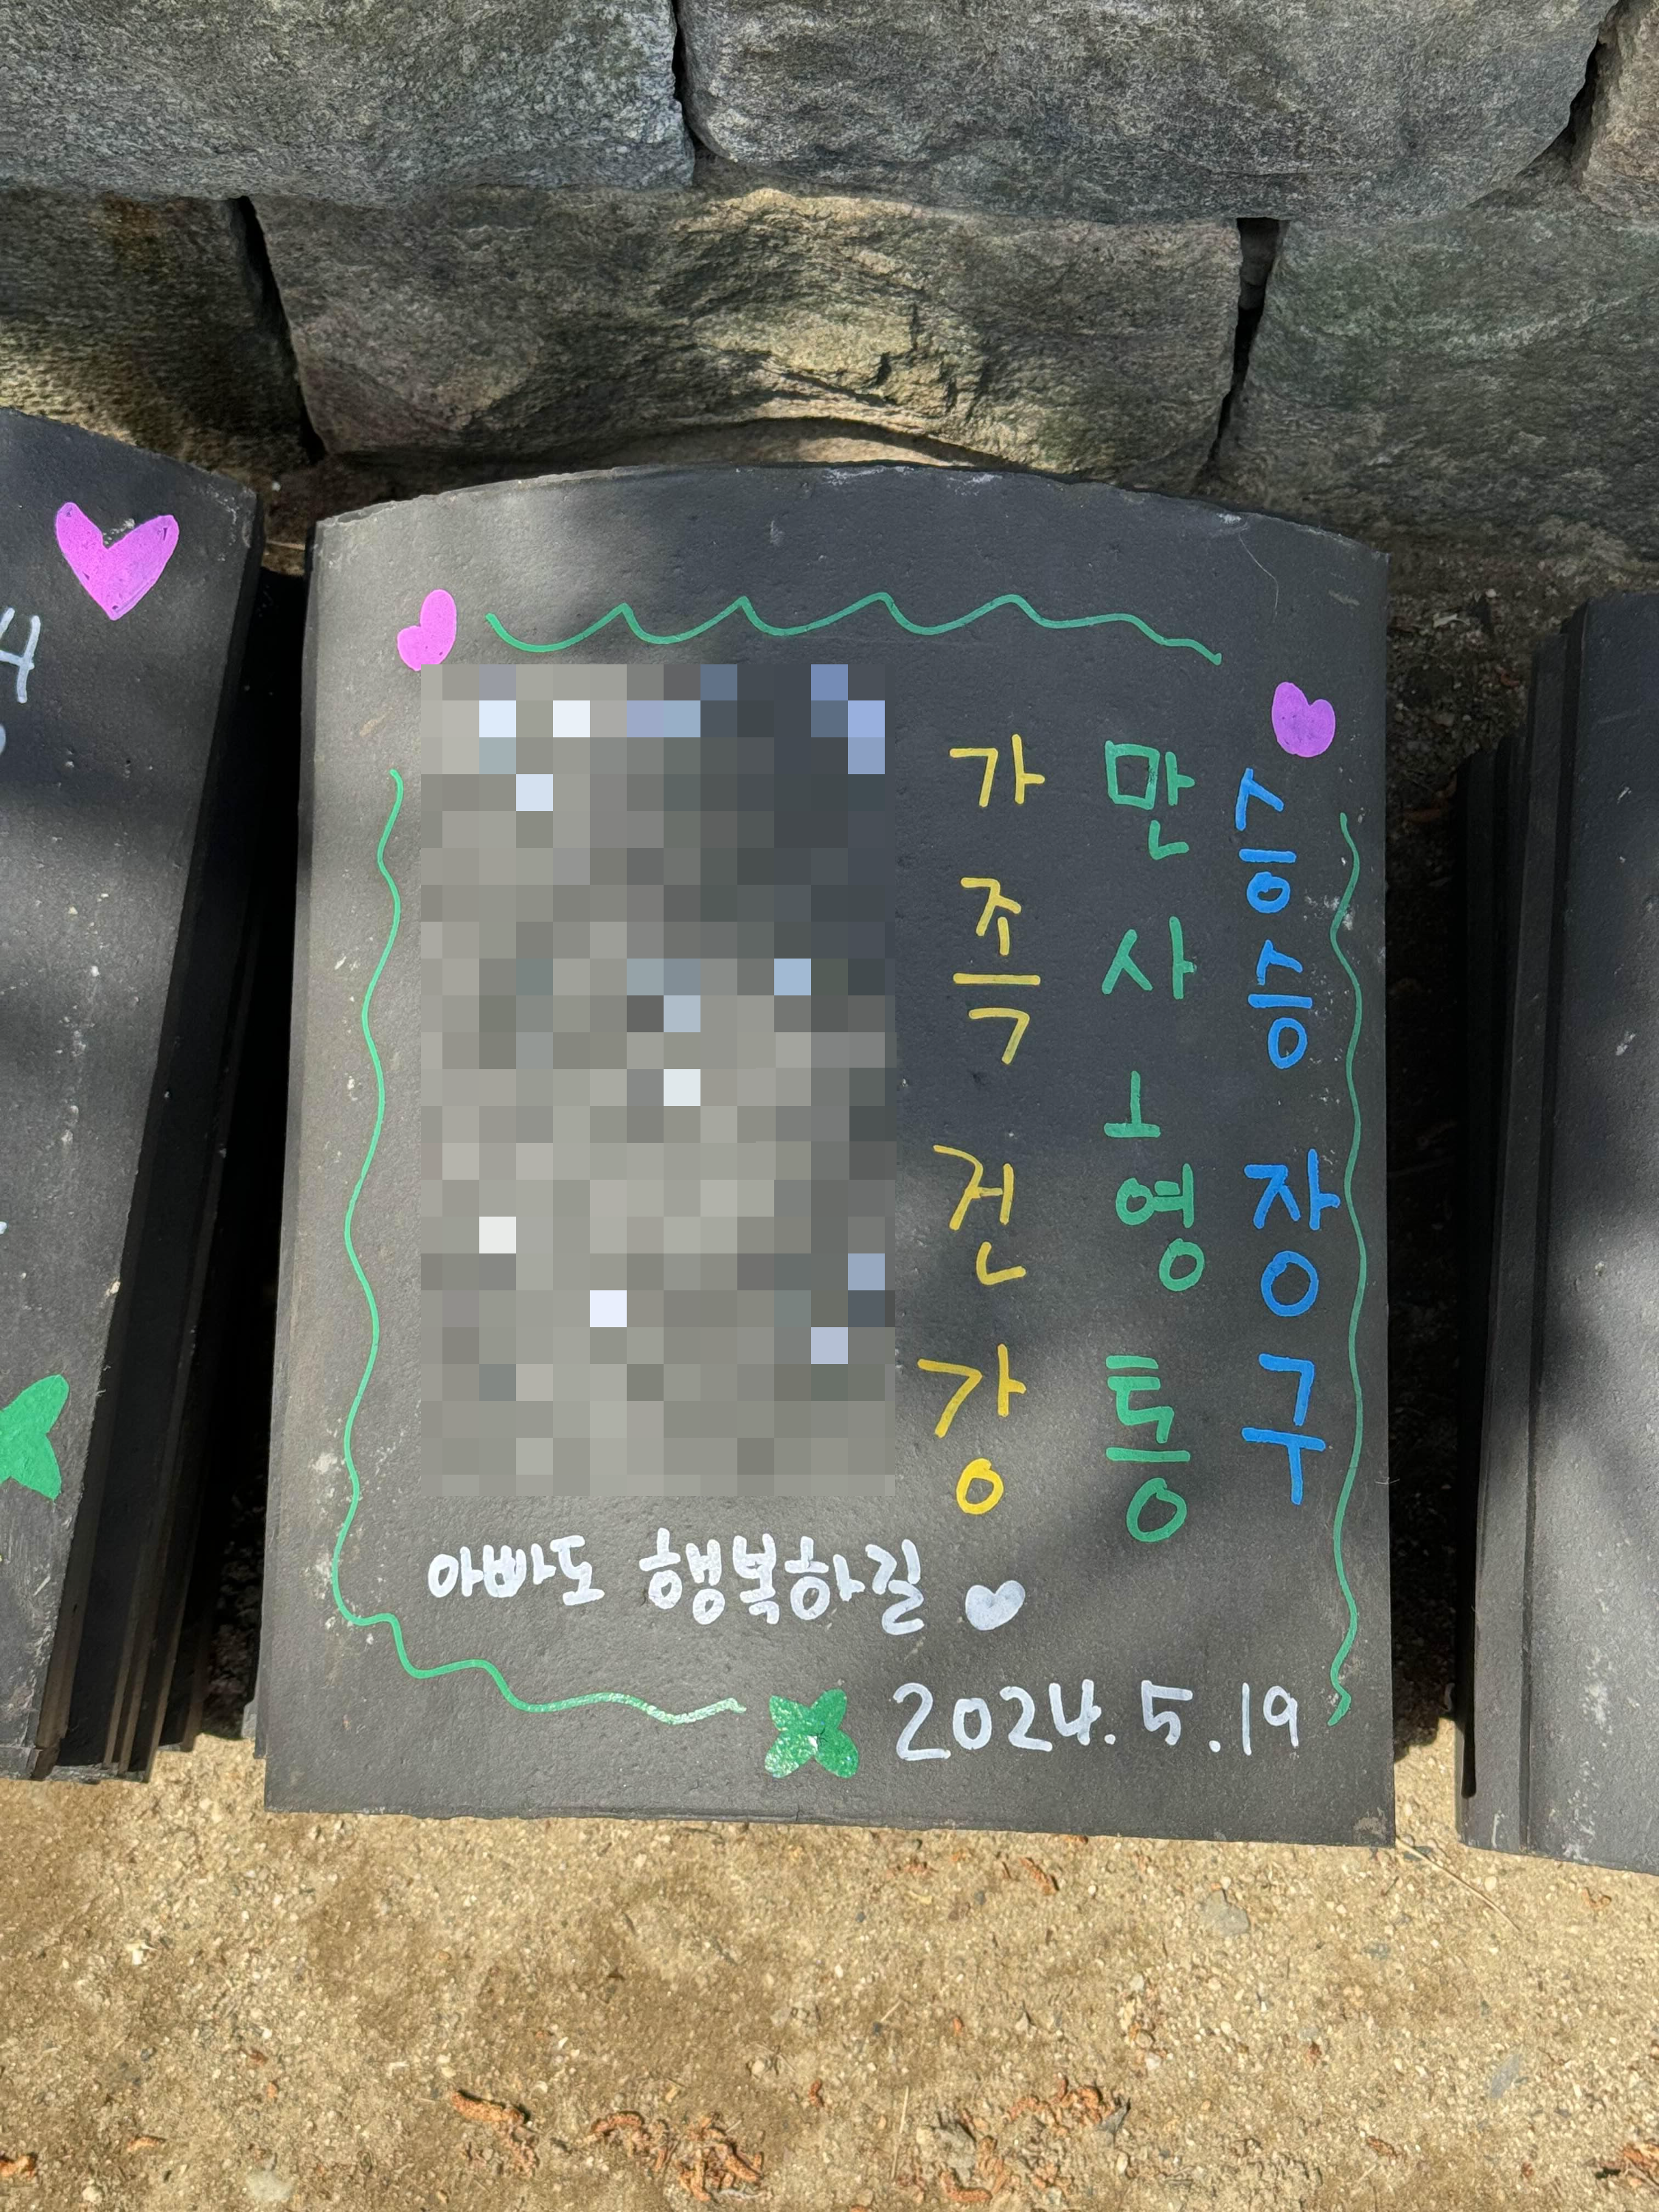 승승장구
만사형통
가족건강
아빠도 행복하길
2024.5.19
4